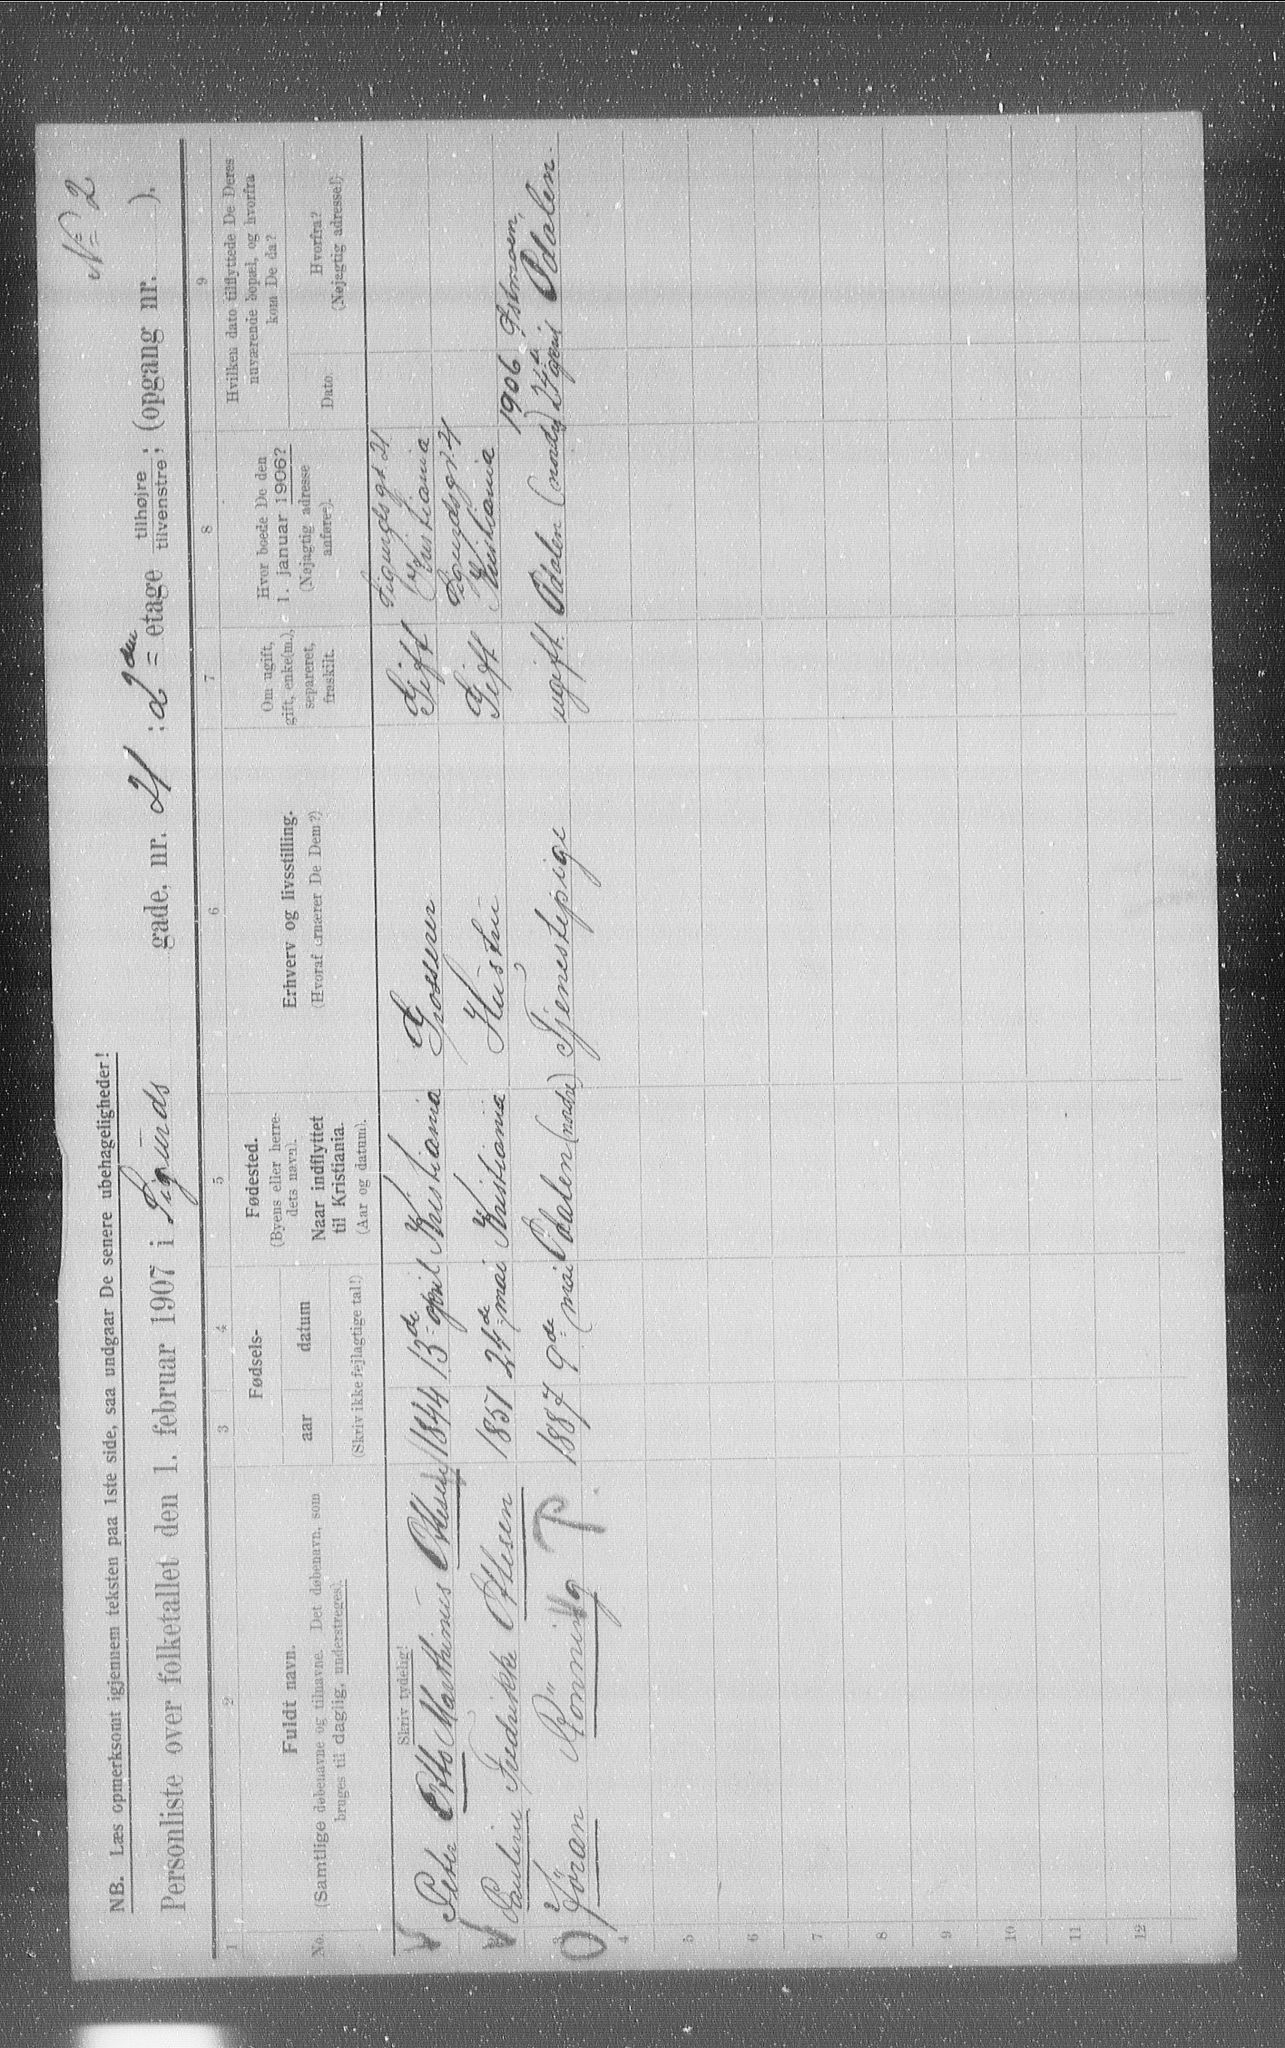 Nº 2
NB. Læs opmerksomt igjennem teksten paa 1ste side, saa undgaar De senere ubehageligheder!
Personliste over folketallet den 1. februar 1907 i Sigurds gade, nr. 21 ; 2den etage tilhøjre / tilvenstre; (opgang nr. ).
1 2 3 4 5 6 7 8 9
No.
Fuldt navn.
(Samtlige døbenavne og tilnavne. Det døbenavn, som
bruges til daglig, understreges).
Skriv tydelig!
Fødsels-
aar datum
(Skriv ikke fejlagtige tal!)
Fødested.
(Byens eller herre-
dets navn).
Naar indflyttet
til Kristiania.
(Aar og datum).
Erhverv og livsstilling.
(Hvoraf ernærer De Dem?)
Om ugift,
gift, enke(m.),
separeret,
fraskilt.
Hvor boede De den
1. januar 1906?
(Nøjagtig adresse
anføres).
Hvilken dato tilflyttede De Deres
nuværende bopæl, og hvorfra
kom De da?
Dato.
Hvorfra?
(Nøjagtig adresse!)
Peter Otto Marthinus Ottesen 1844 13de april Kristiania Grosserer Gift Sigurdsgt 21 Kristiania
2 Pauline Fredrikke Ottesen 1851 24de mai Kristiania Hustru Gift Sigurdsgt 21 Kristiania
3 Jöran Rönning T. 1887 9de mai Odalen (nordre) Tjenestepige ugift. Odalen (nordre) 1906 Odalen.
4
5
6
7
8
9
10
11
12